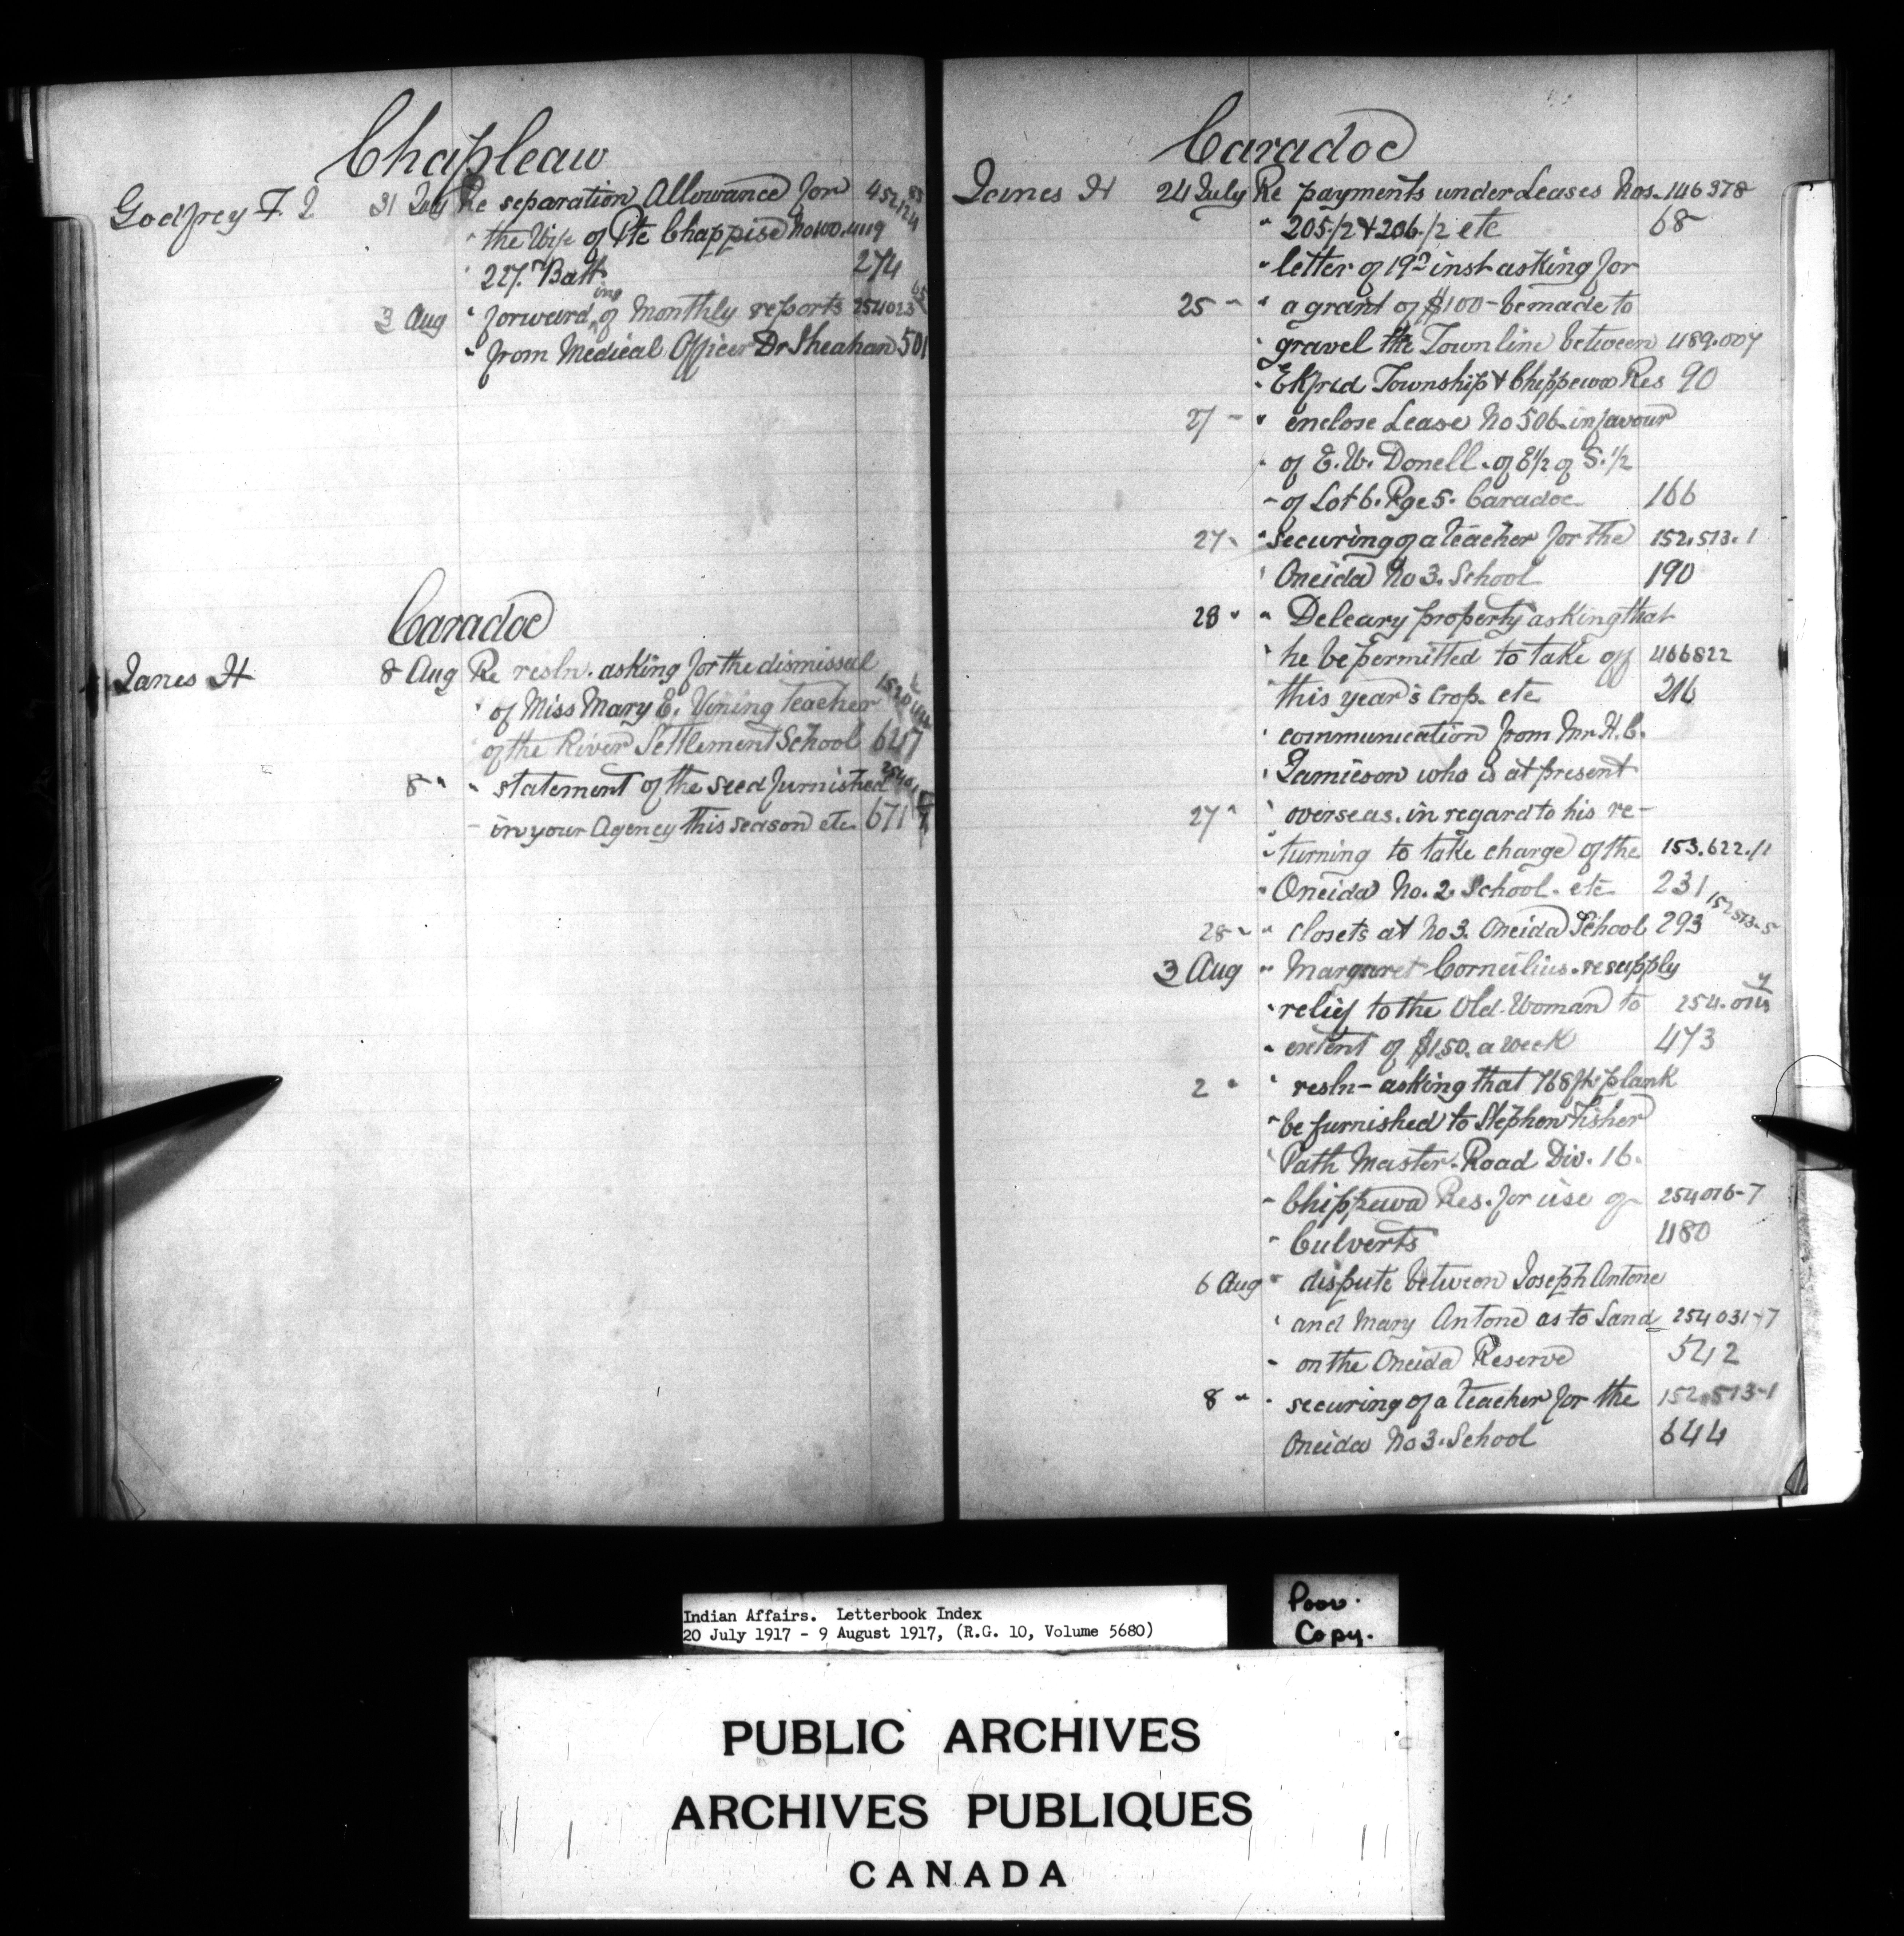 Chapleau
Godfrey F. I 31 July Re separation Allowance for
" the Wife of Pte Chappise No
" 227th Batt 274
3 Aug " forwarding of Monthly reports 254023
" from Medical Officer Dr Sheahan 501
Caradoc
Janes H 8 Aug Re resln. asking for the dismissal
" of Miss Mary E. Vining teacher
of the River Settlement School 647
8 " " statement of the seed furnished
- in your Agency this season etc 671
Caradoc
Janes H 24 July Re payments under Leases Nos. 146378
" 205/2 & 206/2 etc 68
" letter of 19th inst asking for
25 " " a grant of $100 - be made to
" gravel the Town line between 489.007
" Ekfrid Township & Chippewa Res 90
27 - " enclose Lease No 506 in favour
" of E. W. Donell. of E1/2 of S. 1/2
- of Lot 6. Rge 5. Caradoc 166
27 " " Securing of a teacher for the 152.513.1
" Oneida No 3. School 190
28 " " Deleary property asking that
" he be permitted to take off 466822
" this year's crop. etc 216
" communication from Mr H. C.
" Jamieson who is at present
27 " " overseas. in regard to his re-
" turning to take charge of the 153.622./1
" Oneida No. 2. School. etc 231
28 " " closets at No 3. Oneida School 293 152513-5
3 Aug " Margaret Cornelius. re supply
" relief to the Old Woman to
" extent of $1.50. a week 473
2 " " resln - asking that 768 ft. plank
" be furnished to Stephen Fisher
" Path Master. Road Div. 16.
- Chippewa Res. for use of 254016-7
- Culverts 480
6 Aug " dispute between Joseph Antone
" and Mary Antone as to Land 254031-7
- on the Oneida Reserve 542
8 " " securing of a teacher for the 152.513-1
Oneida No 3. School 644
Indian Affairs. Letterbook Index
20 July 1917 - 9 August 1917, (R.G. 10, Volume 5680)
Poor.
Copy.
PUBLIC ARCHIVES
ARCHIVES PUBLIQUES
CANADA